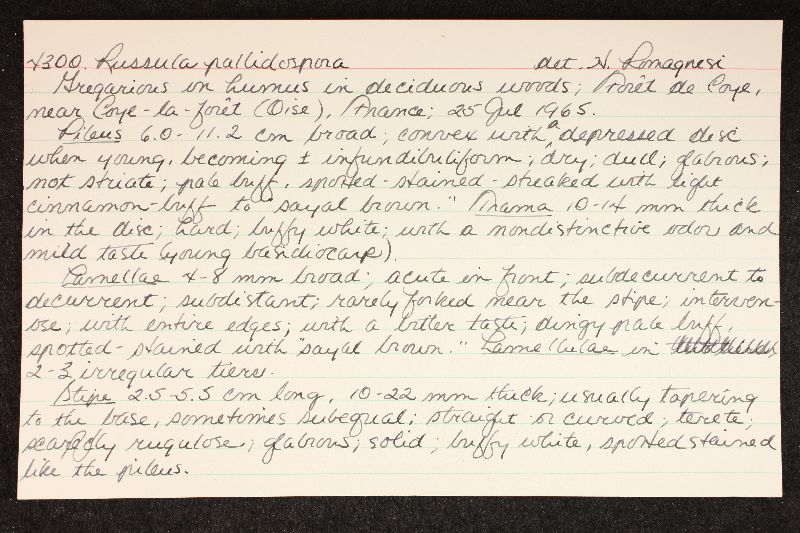 4300. Russula pallidospora det. H. Romagnesi
Gregarious on humus in deciduous woods; Forêt de Coye,
near Coye-la-forêt (Oise), France; 25 Jul 1965.
Pileus 6.0-11.2 cm broad; convex with a depressed disc
when young, becoming ± infundibuliform; dry; dull; glabrous;
not striate; pale buff, spotted-stained-streaked with light
cinnamon-buff to "sayal brown." Trama 10-14 mm thick
in the disc; hard; buffy white; with a nondistinctive odor and
mild taste (young basidiocarp).
Lamellae 4-8 mm broad; acute in front; subdecurrent to
decurrent; subdistant; rarely forked near the stipe; interven-
ose; with entire edges; with a bitter taste; dingy pale buff,
spotted-stained with "sayal brown." Lamellulae in
2-3 irregular tiers.
Stipe 2.5-5.5 cm long, 10-22 mm thick; usually tapering
to the base, sometimes subequal; straight or curved; terete;
scarcely rugulose; glabrous; solid; buffy white, spotted stained
like the pileus.